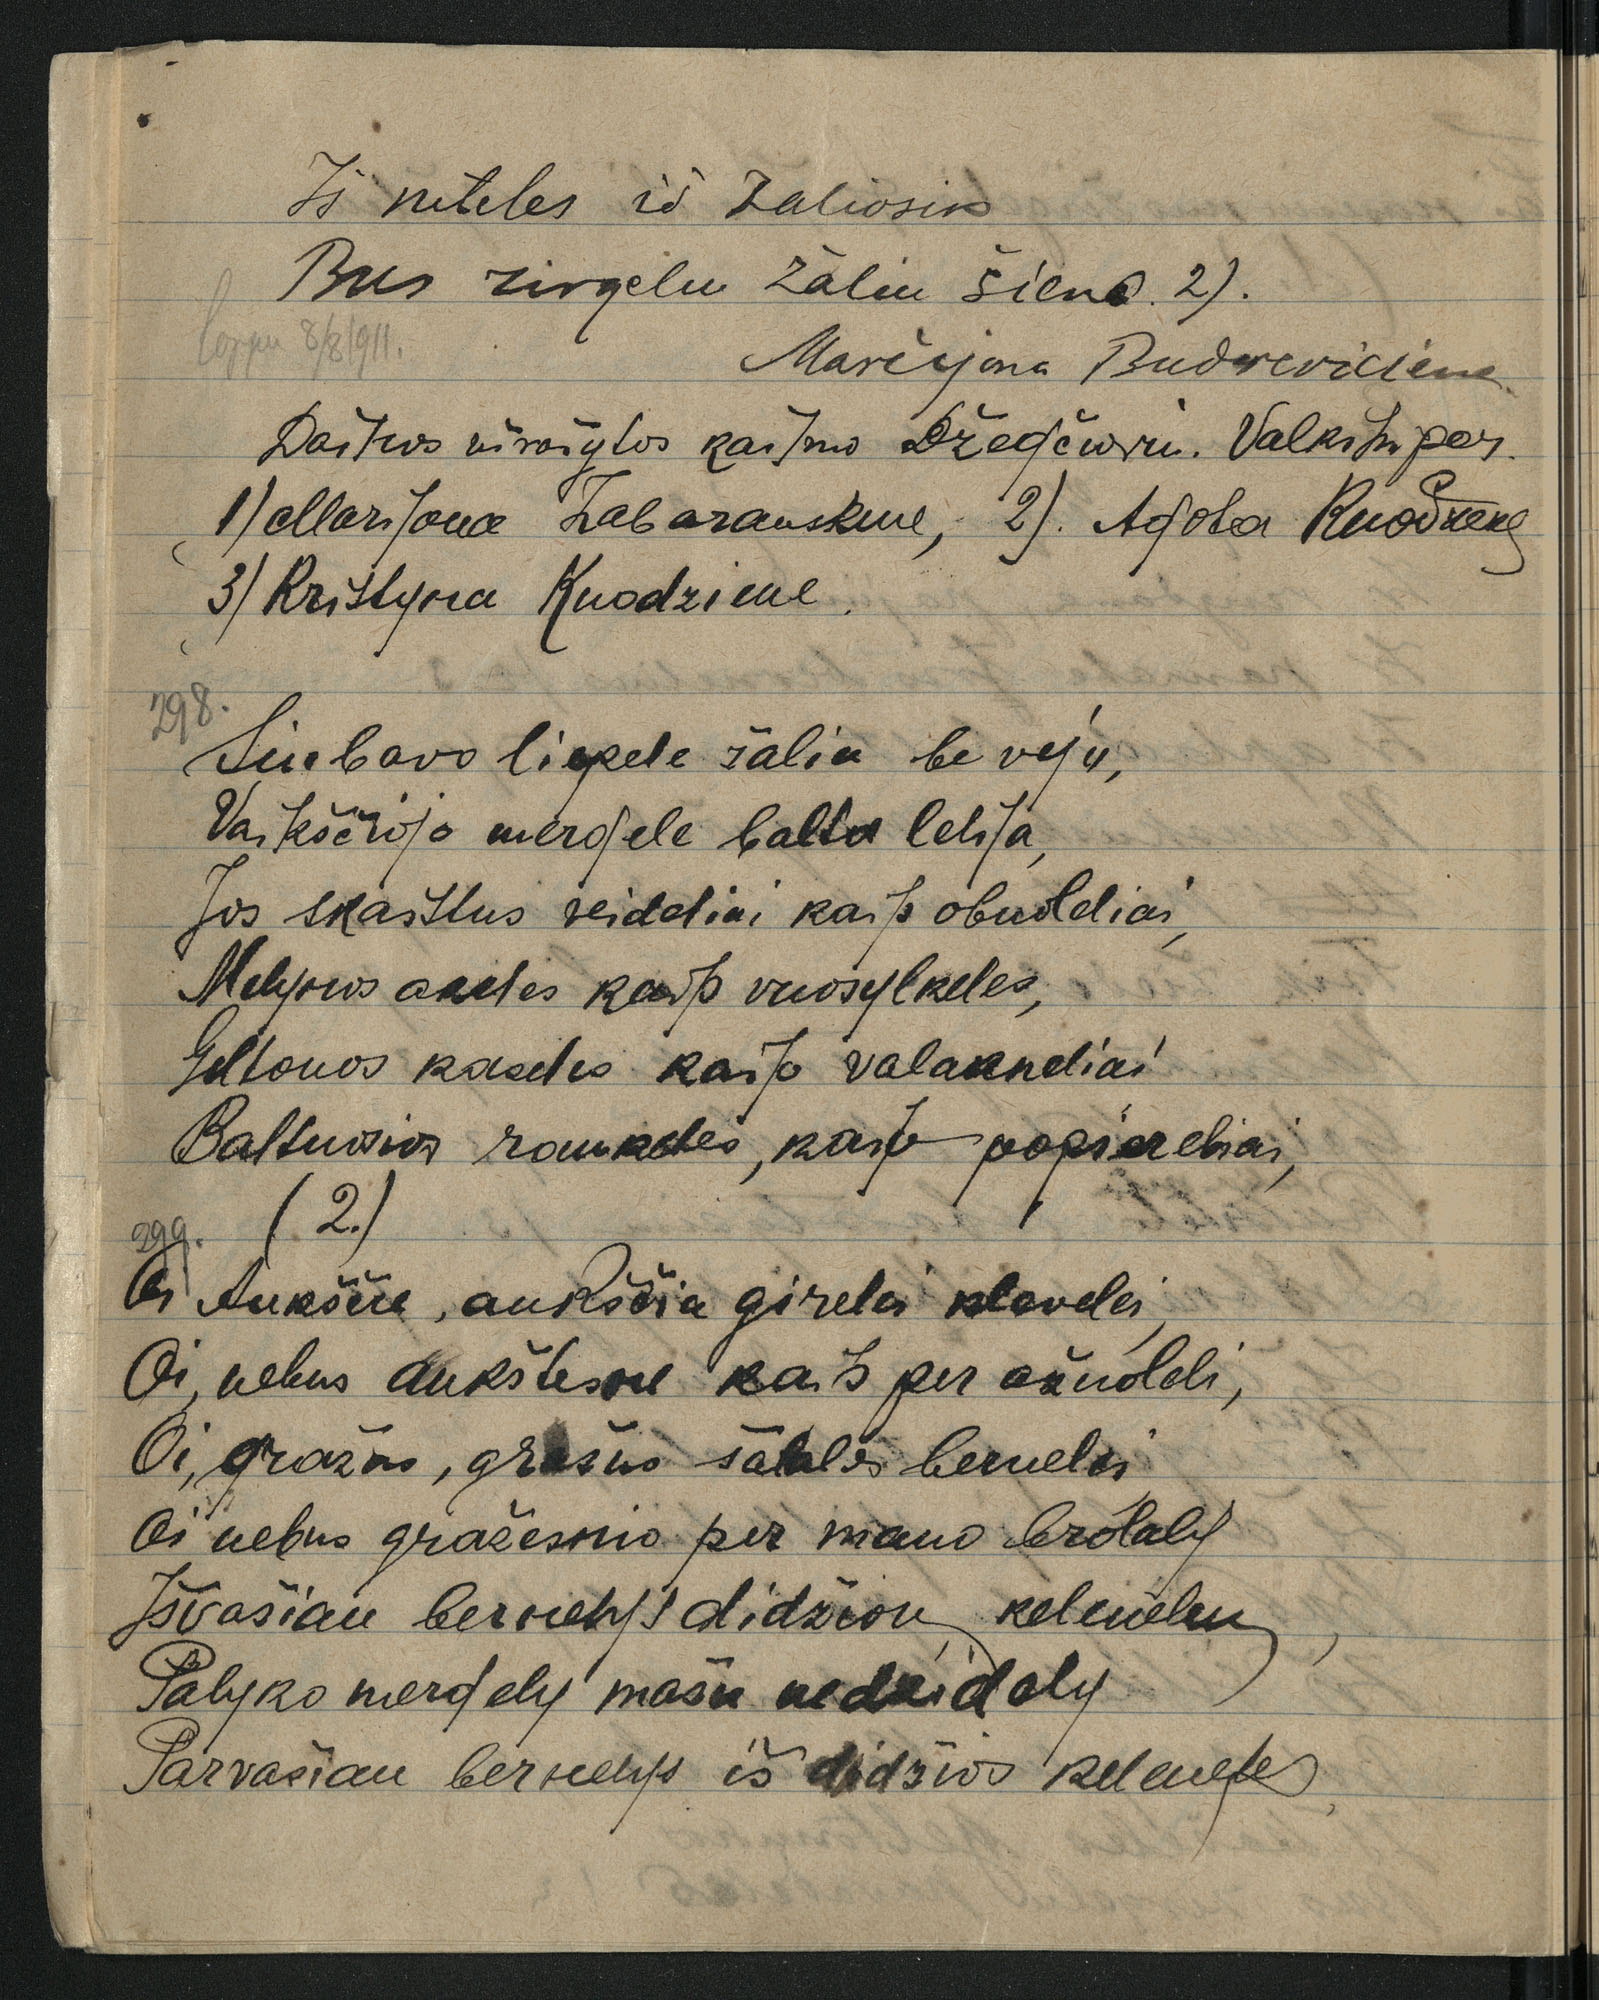 Iš ruteles iš žaliosis
Bus žirgelu žaliu šieno 2).
8/8 1911.
Marcijona Budrevičiene
Dainos užrašytos kaimo Džegčioriu. Valkin par.
1) Marijona Zabarauskine, 2). Agota Knodžienė
3) Kristyna Knodziene.
298.
Siubavo liepele žalia be vėju,
Vaikščiojo mergele balta lelija,
Jos skaistus veideliai kaip obuoleliai,
Melynos akeles kaip vuosylkeles,
Geltonos kaseles kaip valakneliai
Baltuosios rankeles, kaip popiereliai,
(2.)
299.
Oi Aukščia, aukščia gireles klevelei,
Oi, nebus aukštesne kaip per ąžuoleli,
Oi, gražus, gražus šaleles bernelei
Oi nebus gražesnio per mano brolalį
Išvašiau bernelys didžion kelmelen,
Palyko mergely mašu nedzidely
Parvašiau bernelys iš didžios kelmeles,